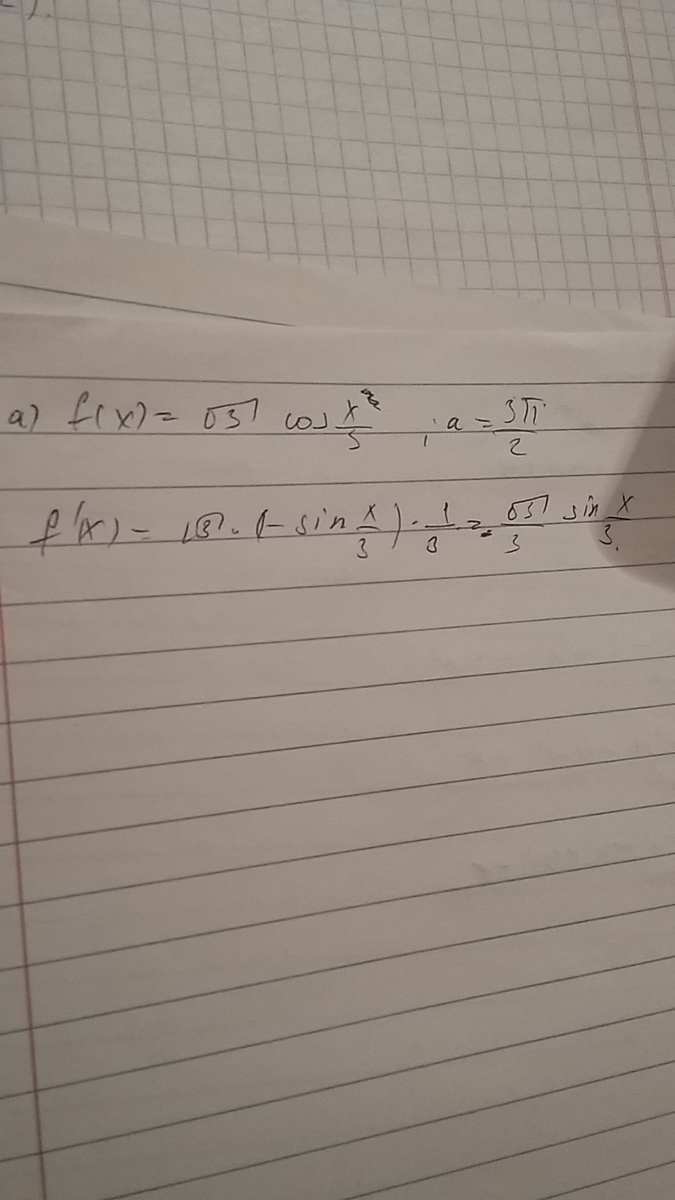 a) f(x) = √3 cos x/3 ; a = 3π/2
f'(x) = √3 · (- sin x/3) · 1/3 = √3/3 sin x/3.